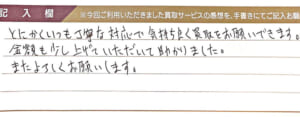 記入欄 ※今回ご利用いただきました買取サービスの感想を、手書きにてご記入お願
とにかくいつも丁寧な対応で気持ち良く買取をお願いできます。
金額も少し上げていただいて助かりました。
またよろしくお願いします。